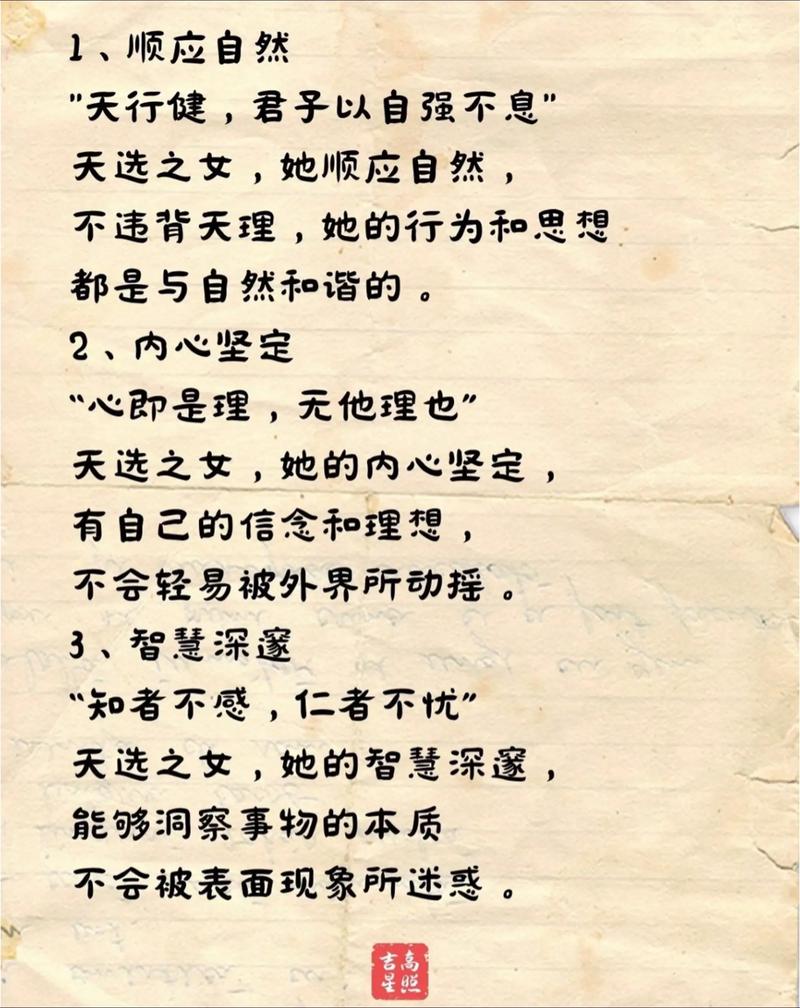 1、顺应自然
"天行健，君子以自强不息"
天选之女，她顺应自然，
不违背天理，她的行为和思想
都是与自然和谐的。
2、内心坚定
“心即是理，无他理也”
天选之女，她的内心坚定，
有自己的信念和理想，
不会轻易被外界所动摇。
3、智慧深邃
“知者不感，仁者不忧”
天选之女，她的智慧深邃，
能够洞察事物的本质
不会被表面现象所迷惑。
吉星高照